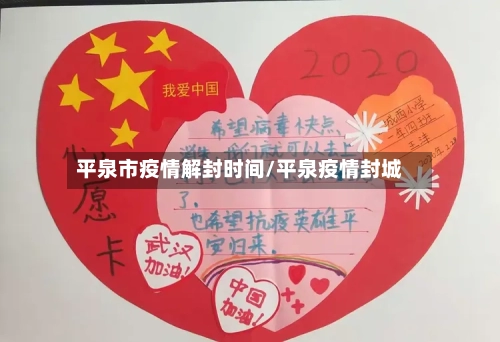 我爱中国
2020
心愿卡
希望病毒快点
平泉市疫情解封时间/平泉疫情封城
了。
也希望抗疫英雄平
安归来。
城西小学
武汉
加油!
中国
加油!